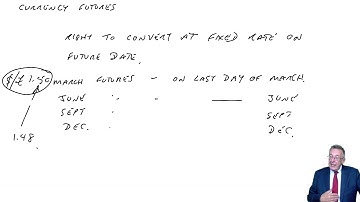 CURRENCY FUTURES
RIGHT TO CONVERT AT FIXED RATE ON
FUTURE DATE.
$/£ 1.50 MARCH FUTURES - ON LAST DAY OF MARCH.
JUNE " " — JUNE
SEPT " SEPT
DEC. " DEC.
1.48